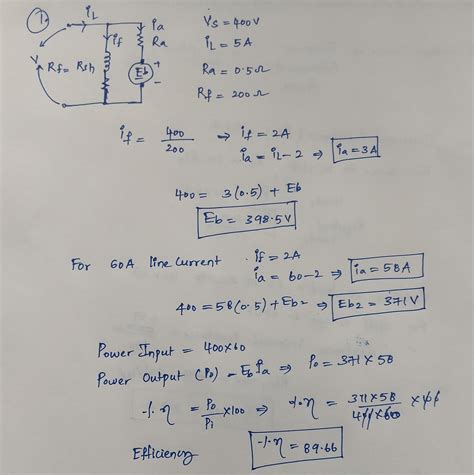 1.
iL
V
Rf = Rsh
if
ia
Ra
Eb
+
-
Vs = 400V
iL = 5A
Ra = 0.5Ω
Rf = 200Ω
if = 400/200 → if = 2A
ia = iL-2 ⇒ ia = 3A
400 = 3(0.5) + Eb
Eb = 398.5V
For 60A line current. if = 2A
ia = 60-2 ⇒ ia = 58A
400 = 58(0.5) + Eb2 ⇒ Eb2 = 371V
Power Input = 400×60
Power Output (Po) = Eb ia ⇒ Po = 371×58
% η = Po/Pi ×100 ⇒ % η = 371×58/400×60 ×100
Efficiency % η = 89.66